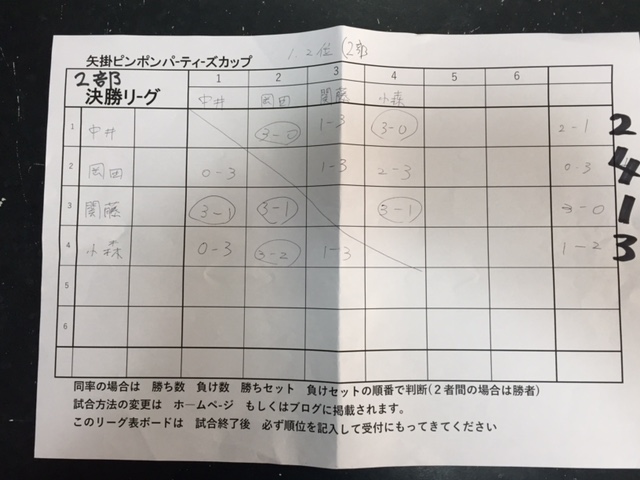 1.2位(2部
矢掛ピンポンパーティーズカップ
2部
決勝リーグ
1 2 3 4 5 6
中井 岡田 関藤 小森
1 中井 3-0 1-3 3-0 2-1 2
2 岡田 0-3 1-3 2-3 0-3 4
3 関藤 3-1 3-1 3-1 3-0 1
4 小森 0-3 3-2 1-3 1-2 3
5
6
同率の場合は 勝ち数 負け数 勝ちセット 負けセットの順番で判断(2者間の場合は勝者)
試合方法の変更は ホームページ もしくはブログに掲載されます。
このリーグ表ボードは 試合終了後 必ず順位を記入して受付にもってきてください